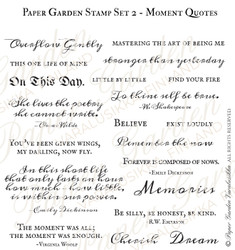 Paper Garden Stamp Set 2 - Moment Quotes
Overflow Gently
Mastering the art of being me
This one life of mine
stronger than yesterday
On This Day.
Little by little
Find your fire
She lives the poetry
she cannot write.
-Oscar Wilde
To thine self be true.
-Wm Shakespeare
Believe
Exist loudly
You've been given wings,
my darling, now fly.
Remember the now
In this short life
that only lasts an hour
how much - how little,
is within our power.
Emily Dickinson
Forever is composed of nows.
-Emily Dickinson
Memories
Be silly, be honest, be kind.
-R.W. Emerson
The moment was all;
the moment was enough.
-Virginia Woolf
Cherish
Dream